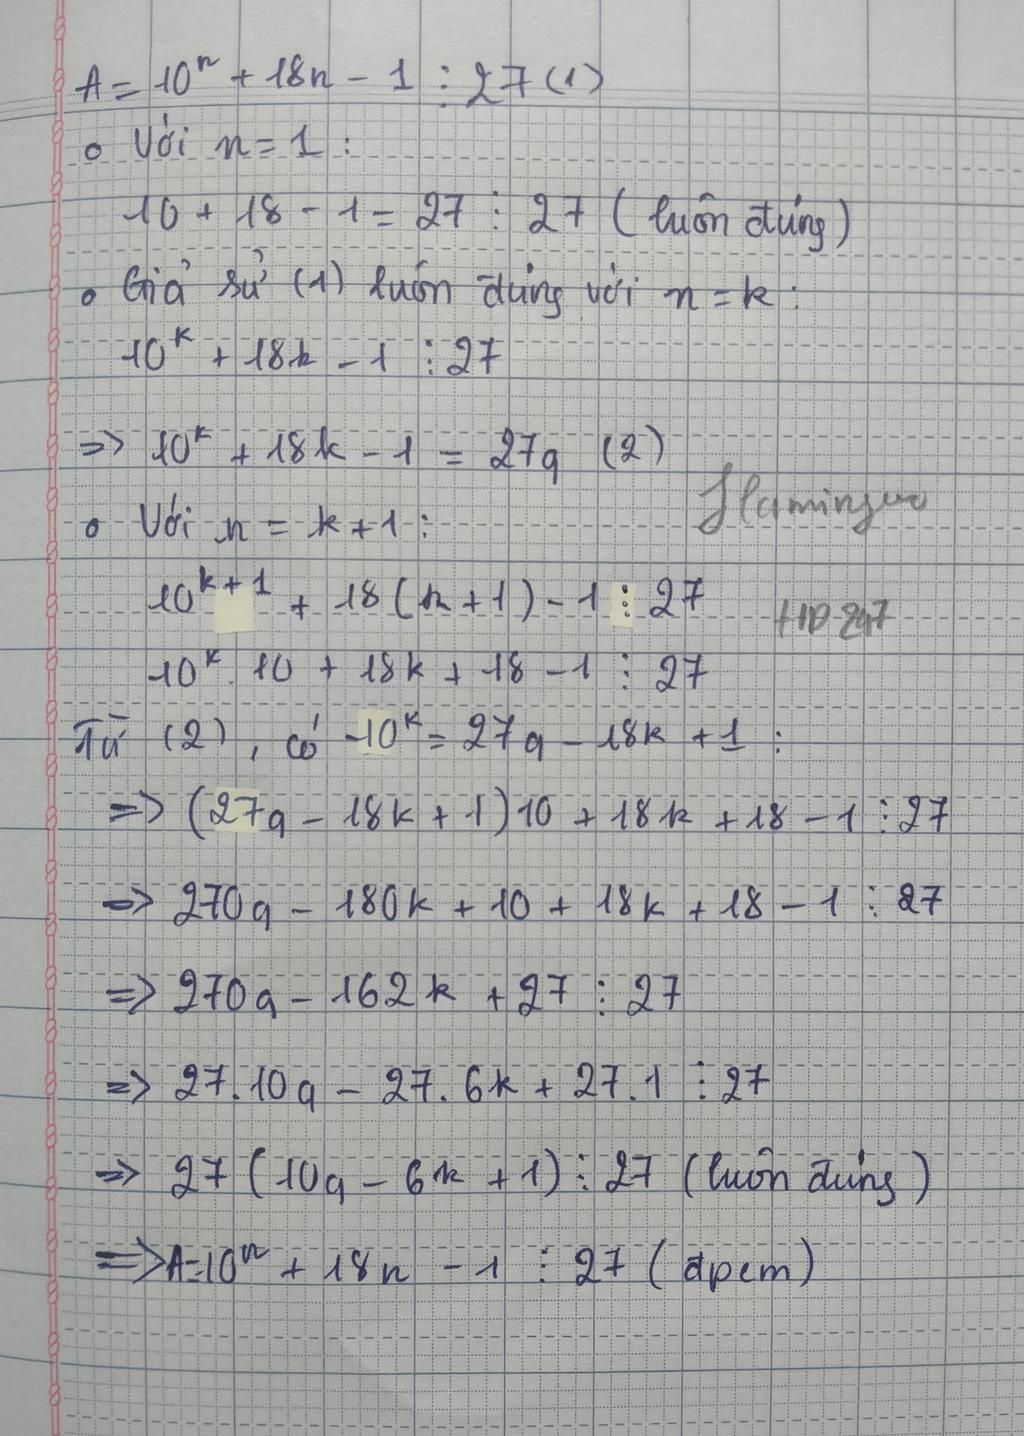 A = 10ⁿ + 18n - 1 ⋮ 27 (1)
Với n = 1 :
10 + 18 - 1 = 27 ⋮ 27 (luôn đúng)
Giả sử (1) luôn đúng với n = k :
10ᵏ + 18k - 1 ⋮ 27
=> 10ᵏ + 18k - 1 = 27q (2)
Flamingoo
Với n = k + 1 :
10ᵏ⁺¹ + 18(k + 1) - 1 ⋮ 27
HD247
10ᵏ. 10 + 18k + 18 - 1 ⋮ 27
Từ (2), có 10ᵏ = 27q - 18k + 1 :
=> (27q - 18k + 1)10 + 18k + 18 - 1 ⋮ 27
=> 270q - 180k + 10 + 18k + 18 - 1 ⋮ 27
=> 270q - 162k + 27 ⋮ 27
=> 27.10q - 27.6k + 27.1 ⋮ 27
=> 27(10q - 6k + 1) ⋮ 27 (luôn đúng)
=> A = 10ⁿ + 18n - 1 ⋮ 27 (đpcm)